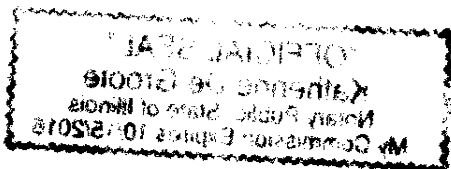 "OFFICIAL SEAL"
Katherine De Groote
Notary Public, State of Illinois
My Commission Expires 10/15/2016